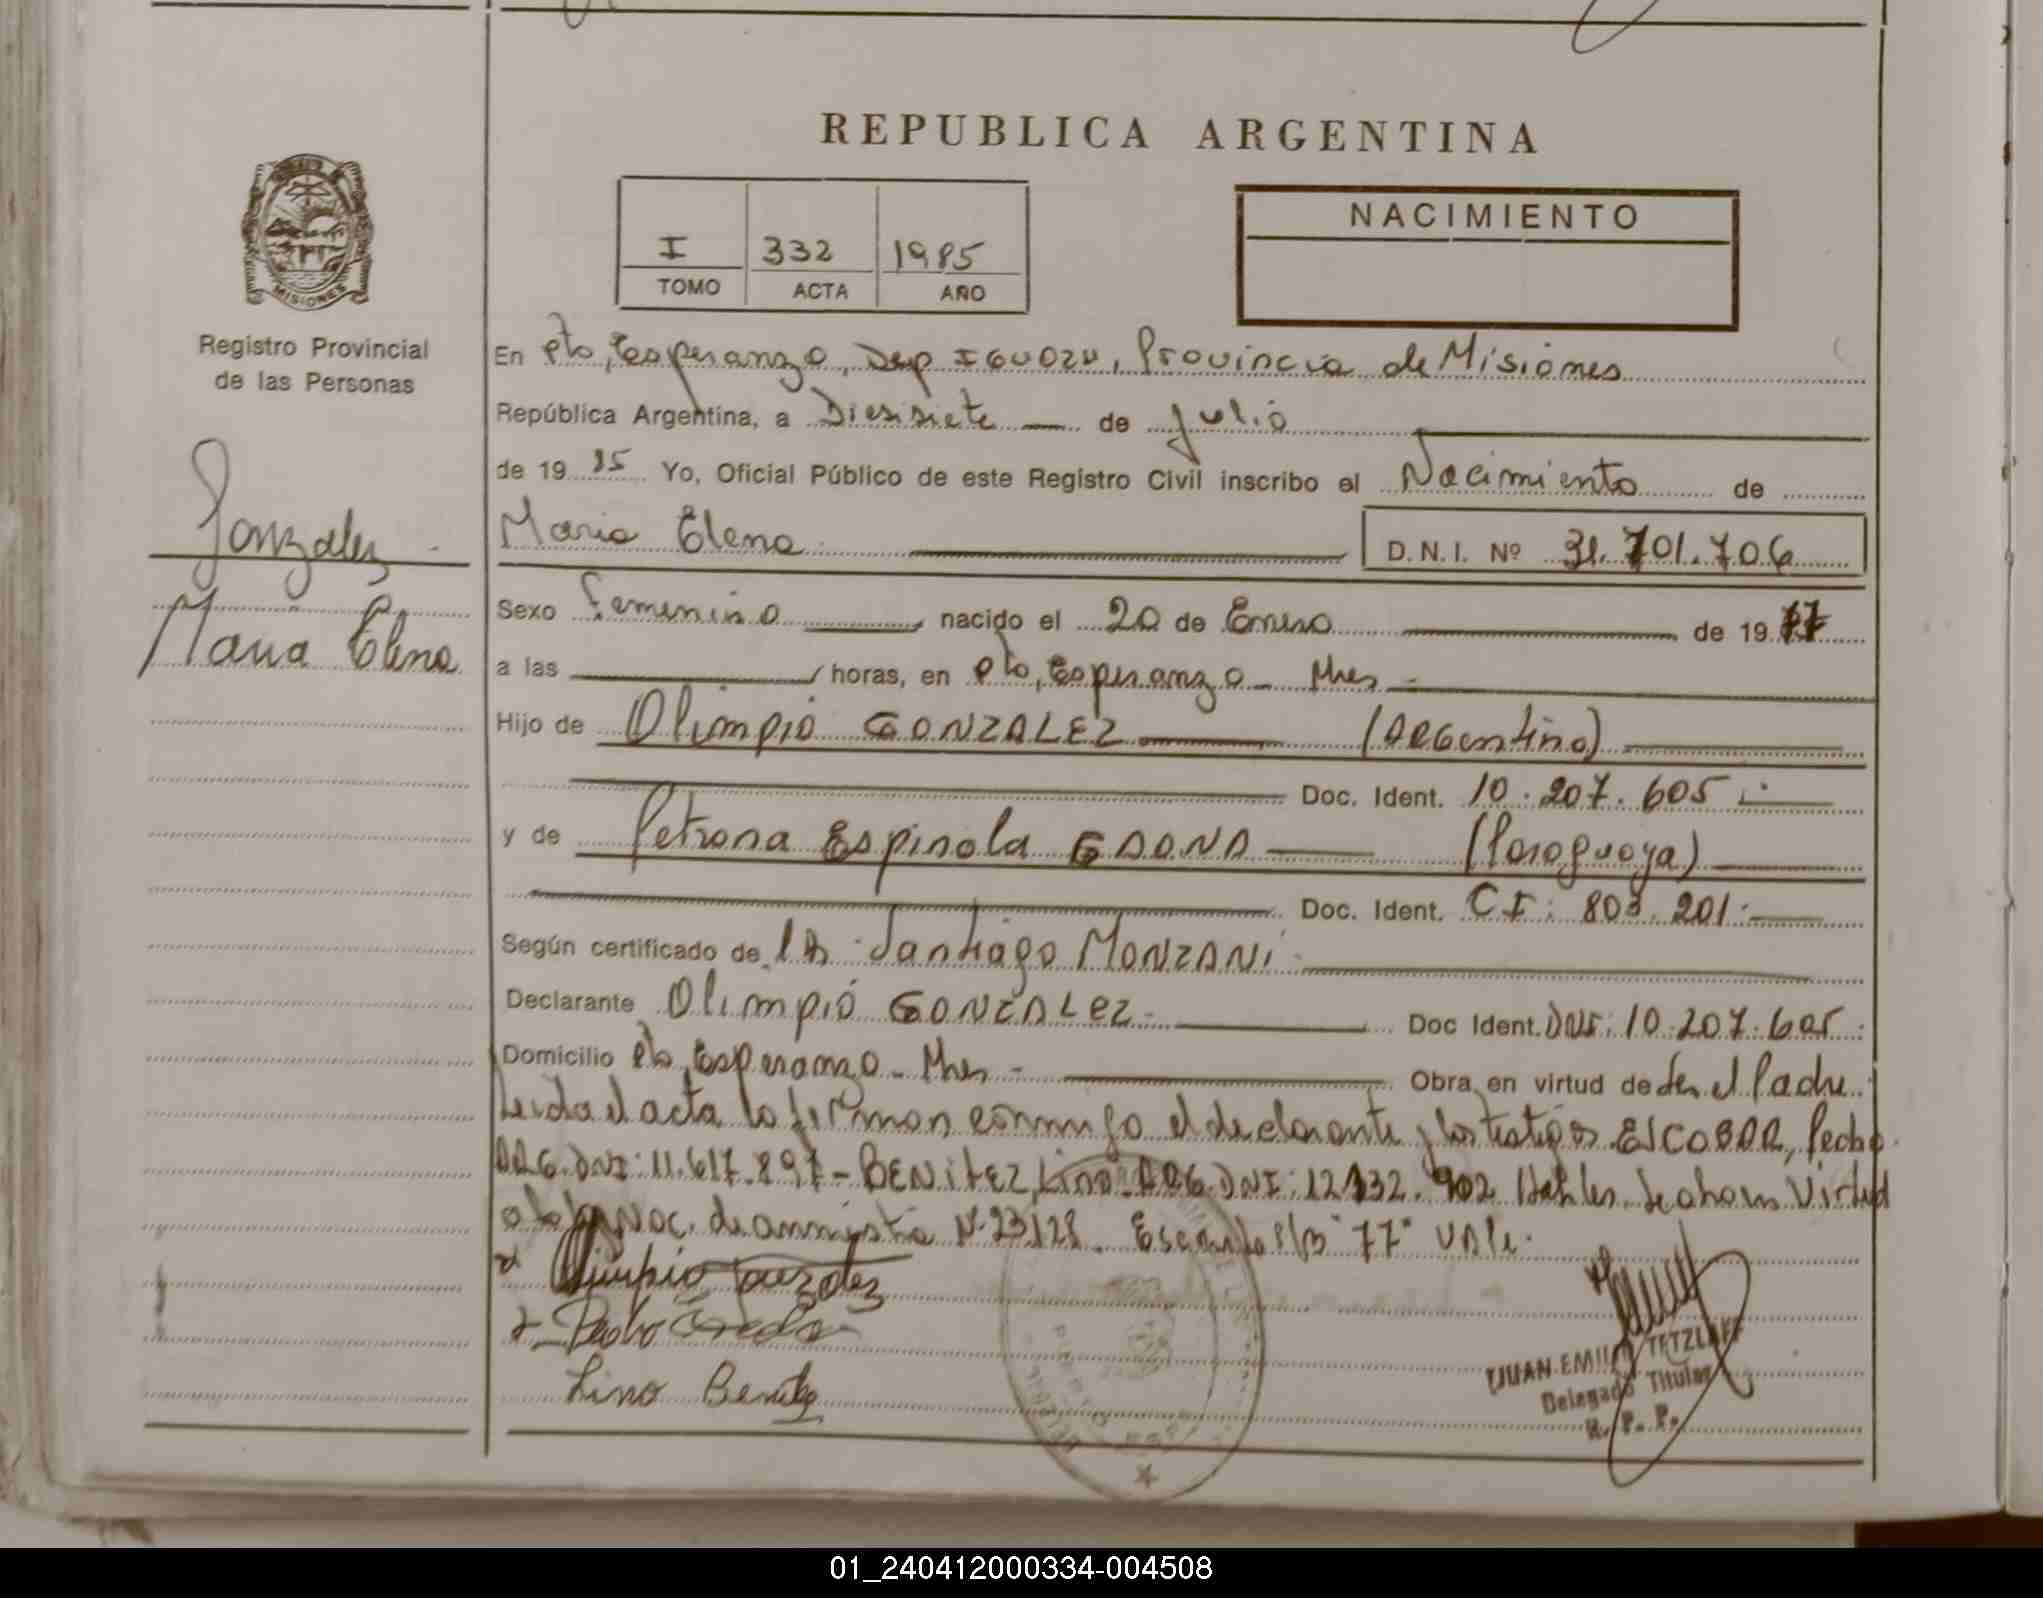 REPUBLICA ARGENTINA
I 332 1985
TOMO ACTA AÑO
NACIMIENTO
MISIONES
Registro Provincial
de las Personas
Gonzalez
Maria Elena
En Pto, Esperanza, Dep IGUAZU, Provincia de Misiones
República Argentina, a Diesisiete de Julio
de 19 85 Yo, Oficial Público de este Registro Civil inscribo el Nacimiento de
Maria Elena D.N.I. Nº 31.701.706
Sexo Femenino nacido el 20 de Enero de 19 77
a las horas, en Pto, Esperanza - Mnes -
Hijo de Olimpio GONZALEZ (Argentino)
Doc. Ident. 10.207.605
y de Petrona Espinola GAONA (Paraguaya)
Doc. Ident. C I: 803.201
Según certificado de Santiago MONZANI
Declarante Olimpio GONZALEZ Doc Ident. DNI: 10.207.605
Domicilio Pto, Esperanza - Mnes - Obra en virtud de Ser el Padre
Leida el acta la firman conmigo el declarante y los testigos ESCOBAR, Pedro
ARG. DNI: 11.617.897 - BENITEZ, Lino. ARG. DNI: 12.132.902 Virtud
de amnistia Nº 23128. "77" VALE.
Olimpio Gonzalez
Pedro
Lino Benitez
JUAN EMILIO TETZLAFF
Delegado Titular
R. P. P.
01_240412000334-004508